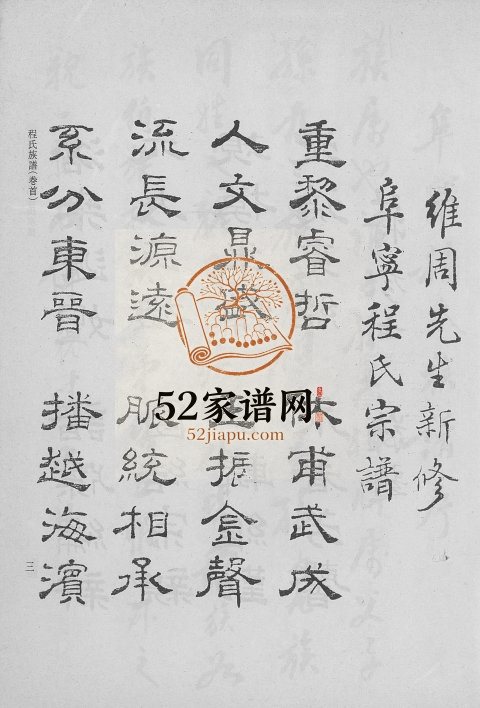 維周先生新修
阜寧程氏宗譜
重黎睿哲 休甫武成
人文鼎盛 玉振金聲
流長源遠 脈統相承
系分東晉 播越海濱
程氏族譜(卷首)
三
52家谱网
52jiapu.com